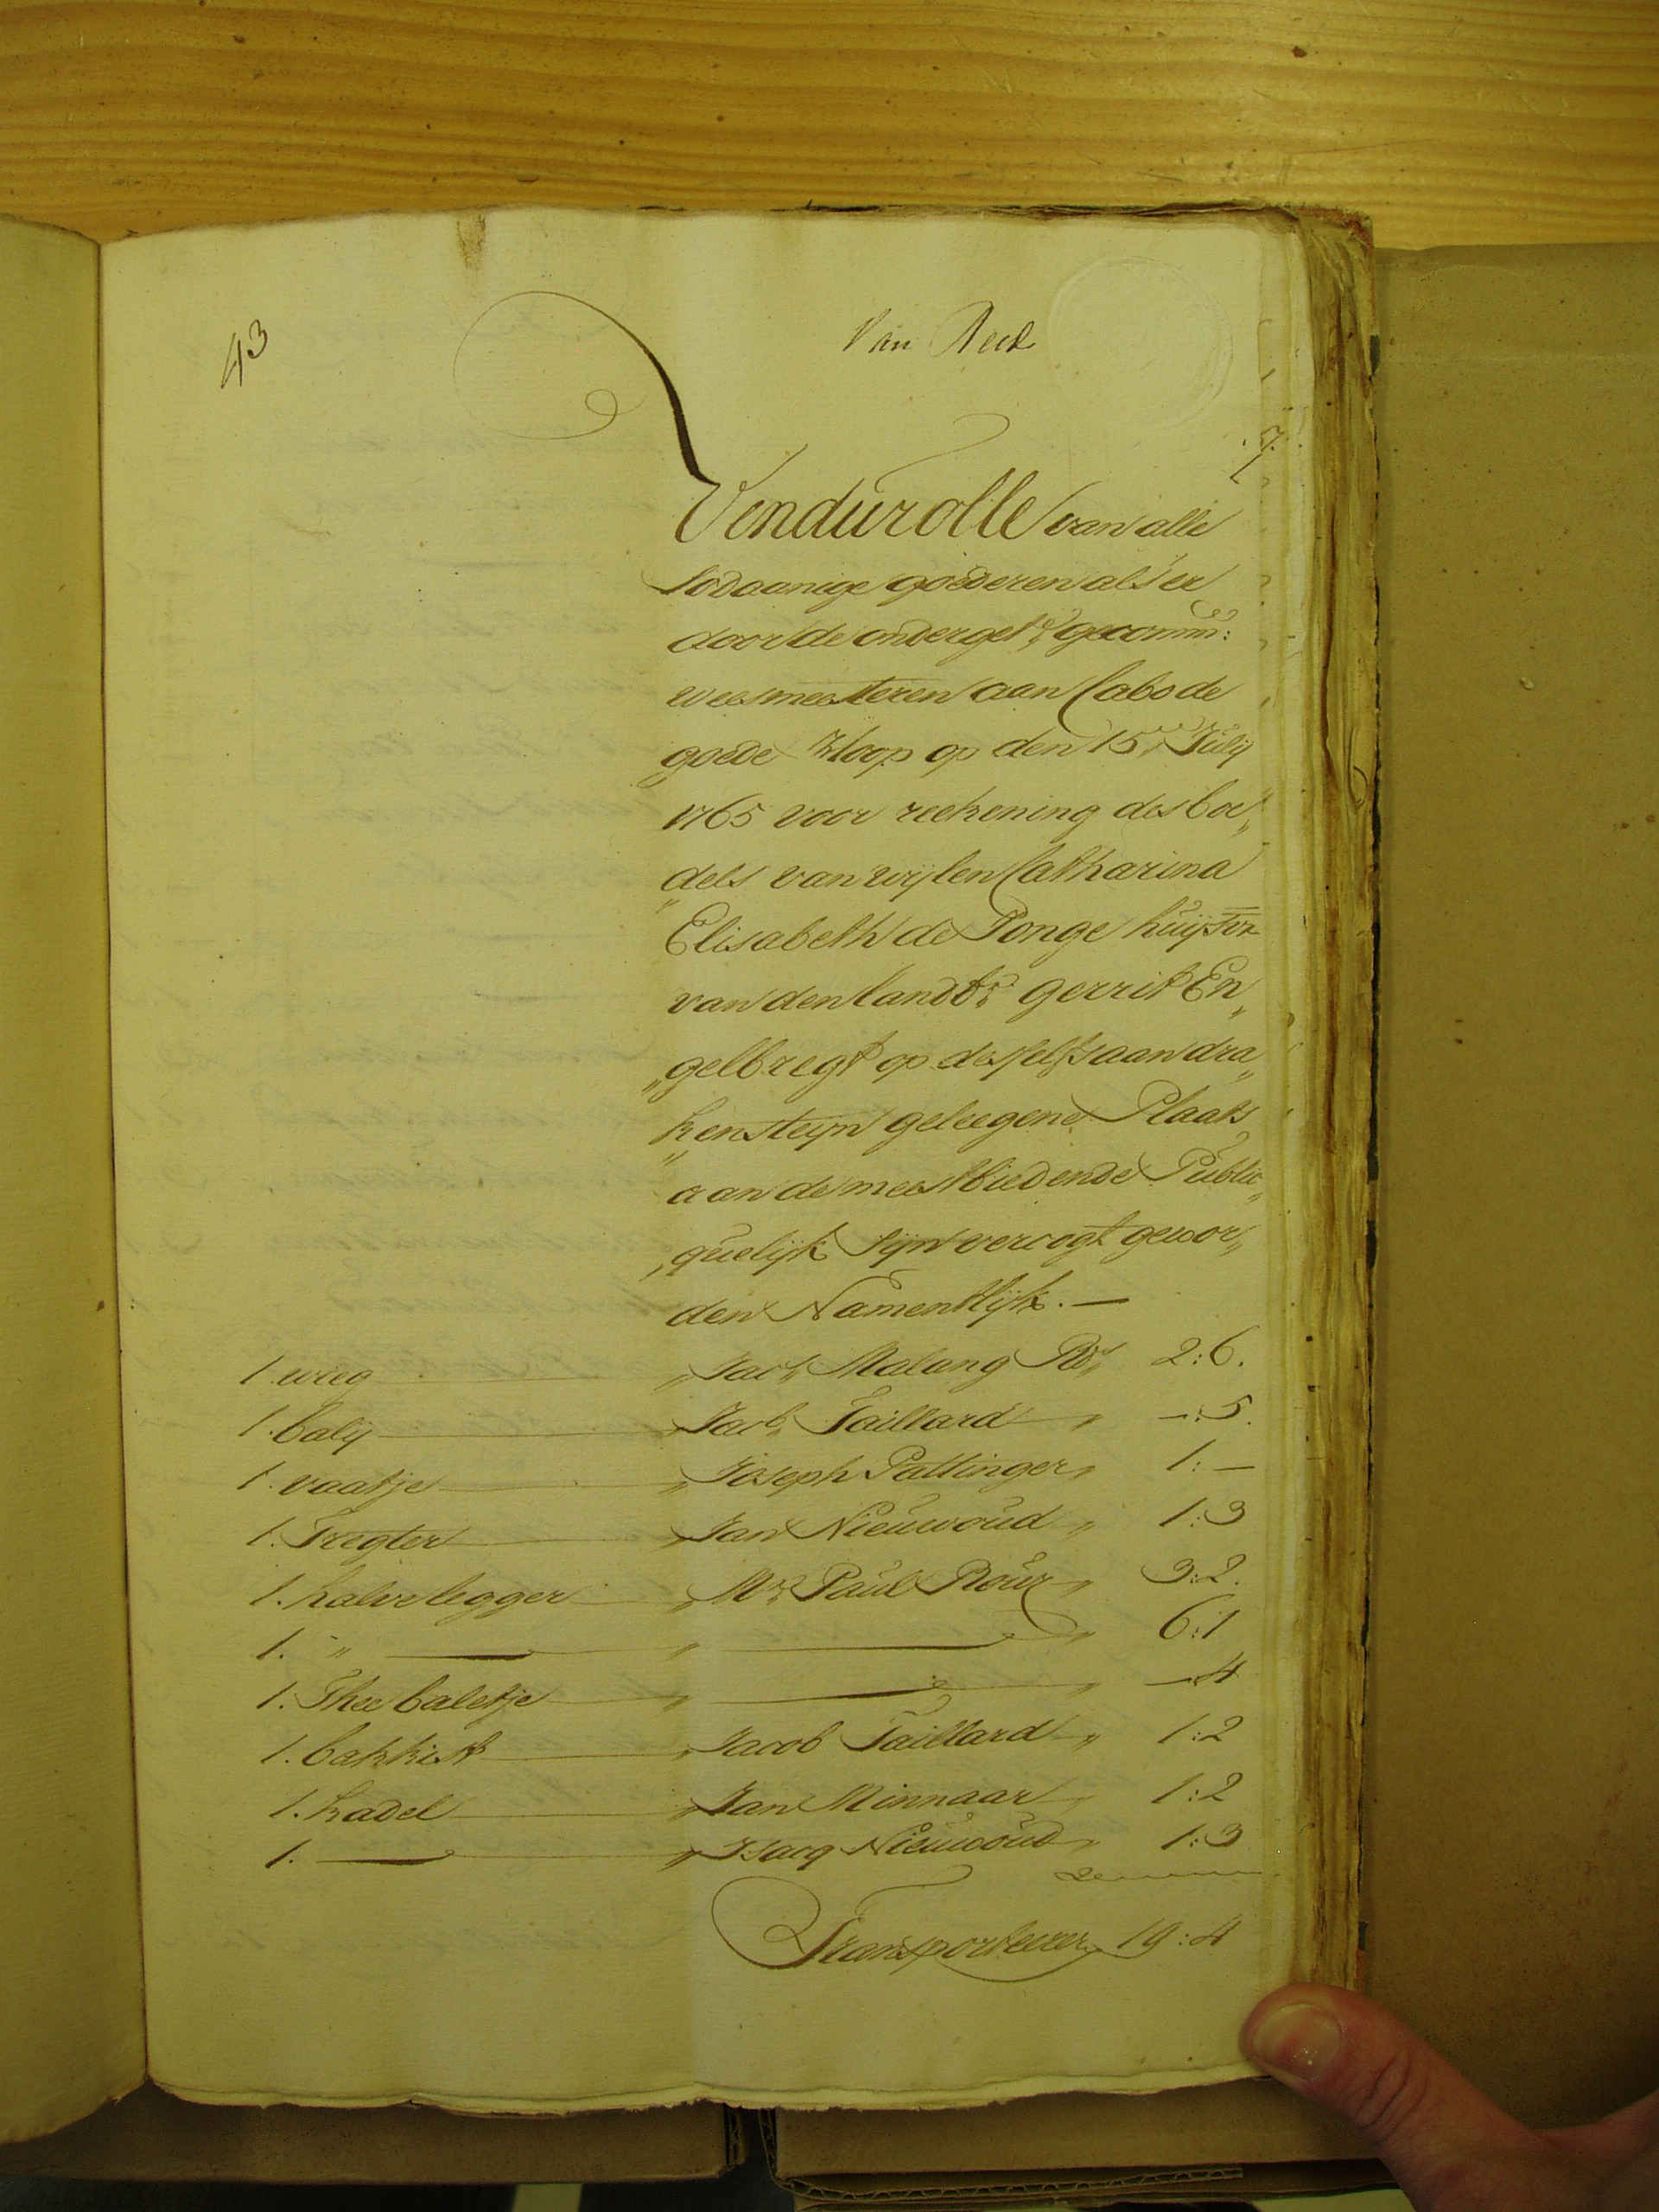 43
Van Reed
Vendurolle van alle
sodaanige goederen als er
door de onderget:e gecomm:
weesmeesteren aan Cabo de
goede Hoop op den 15.en Julij
1765 voor reekening des boe„
„dels van wijlen Catharina
Elisabeth de Ponge huijsvr
van den landbr: gerrit En„
„gelbregt op desselfs aan dra„
„kensteijn geleegene Plaats
aan de meestbiedende Public„
„quelijk sijn vercogt gewor„
den Namentlijk. —
1. wieg „ Jacb: Malang Rds „ 2:6.
1. balij „ Jacb: Taillard „ —:5.
1. vaatje „ Joseph Pattinger „ 1:—
1. Tregter „ Jan Nieuwoud „ 1:3
1. halve legger „ Mr: Paul Roux „ 3:2.
1. „ — „ — „ 6:1
1. Thee baletje „ — „ —:4
1. bakkist „ Jacob Taillard „ 1:2
1. kadel „ Jan Minnaar „ 1:2
1. — „ Isacq Nieuwoud „ 1:3
Transporteere 19:4